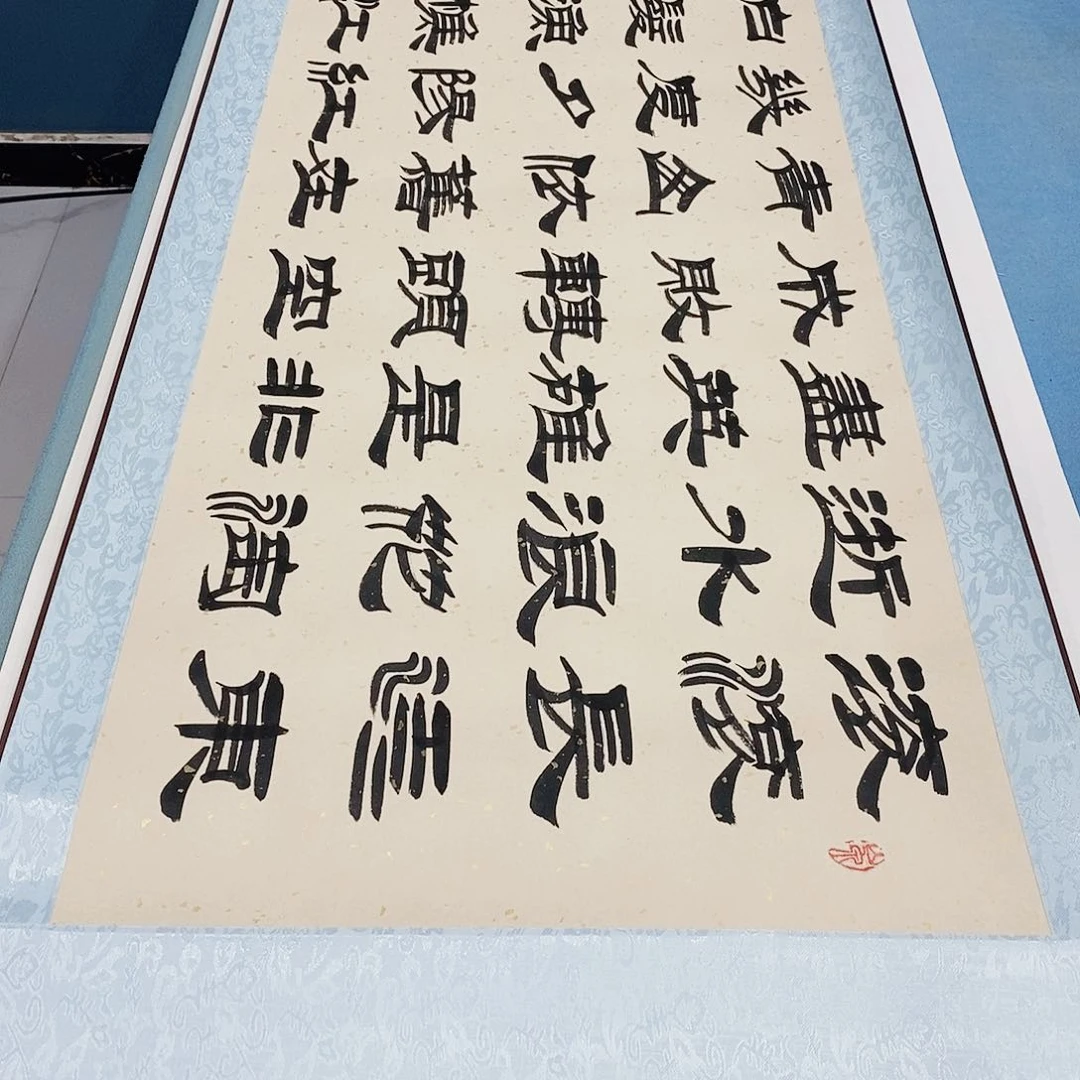 滾滾長江東
逝水浪花淘
盡英雄是非
成敗轉頭空
青山依舊在
幾度夕陽紅
白髮漁樵江